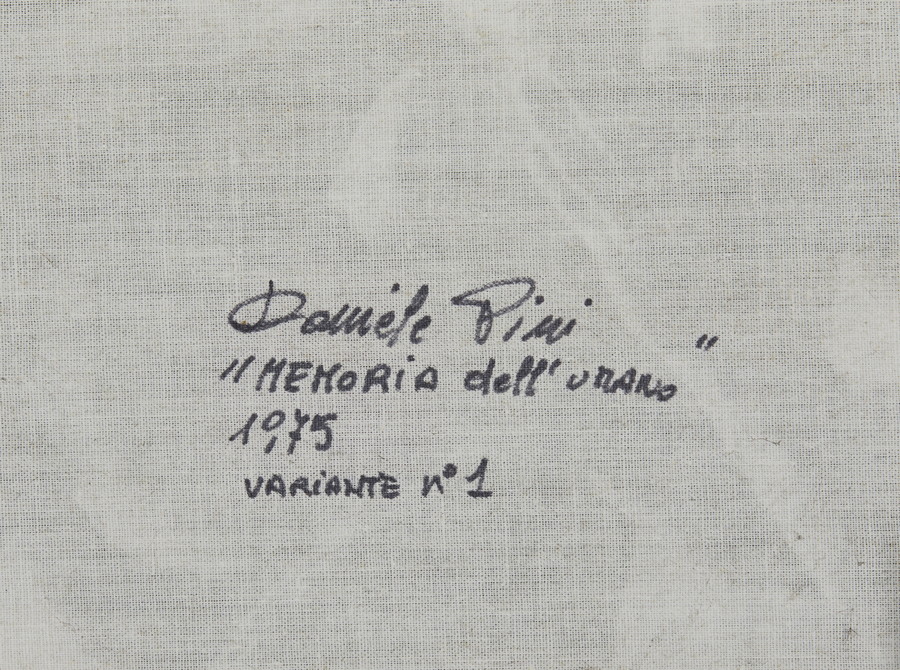 Daniele Pini
"MEMORIA dell'URANO"
1975
VARIANTE n° 1